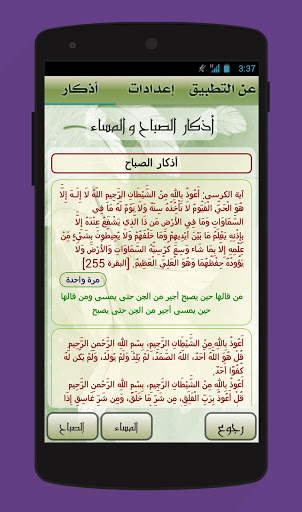 3:37
أذكار إعدادات عن التطبيق
أذكار الصباح و المساء
أذكار الصباح
آية الكرسى: أَعُوذُ بِاللهِ مِنْ الشَّيْطَانِ الرَّجِيمِ اللّهُ لاَ إِلَـهَ إِلاَّ
هُوَ الْحَيُّ الْقَيُّومُ لاَ تَأْخُذُهُ سِنَةٌ وَلاَ نَوْمٌ لَّهُ مَا فِي
السَّمَاوَاتِ وَمَا فِي الأَرْضِ مَن ذَا الَّذِي يَشْفَعُ عِنْدَهُ إِلاَّ
بِإِذْنِهِ يَعْلَمُ مَا بَيْنَ أَيْدِيهِمْ وَمَا خَلْفَهُمْ وَلاَ يُحِيطُونَ بِشَيْءٍ
مِّنْ عِلْمِهِ إِلاَّ بِمَا شَاء وَسِعَ كُرْسِيُّهُ السَّمَاوَاتِ وَالأَرْضَ وَلاَ
يَؤُودُهُ حِفْظُهُمَا وَهُوَ الْعَلِيُّ الْعَظِيمُ. [البقرة 255]
مرة واحدة
من قالها حين يصبح أجير من الجن حتى يمسى ومن قالها
حين يمسى أجير من الجن حتى يصبح
أَعُوذُ بِاللهِ مِنْ الشَّيْطَانِ الرَّجِيمِ، بِسْمِ اللهِ الرَّحْمنِ الرَّحِيمِ
قُلْ هُوَ اللَّهُ أَحَدٌ، اللَّهُ الصَّمَدُ، لَمْ يَلِدْ وَلَمْ يُولَدْ، وَلَمْ يَكُن لَّهُ
كُفُوًا أَحَدٌ.
أَعُوذُ بِاللهِ مِنْ الشَّيْطَانِ الرَّجِيمِ، بِسْمِ اللهِ الرَّحْمنِ الرَّحِيمِ
قُلْ أَعُوذُ بِرَبِّ الْفَلَقِ، مِن شَرِّ مَا خَلَقَ، وَمِن شَرِّ غَاسِقٍ إِذَا
رجوع المساء الصباح